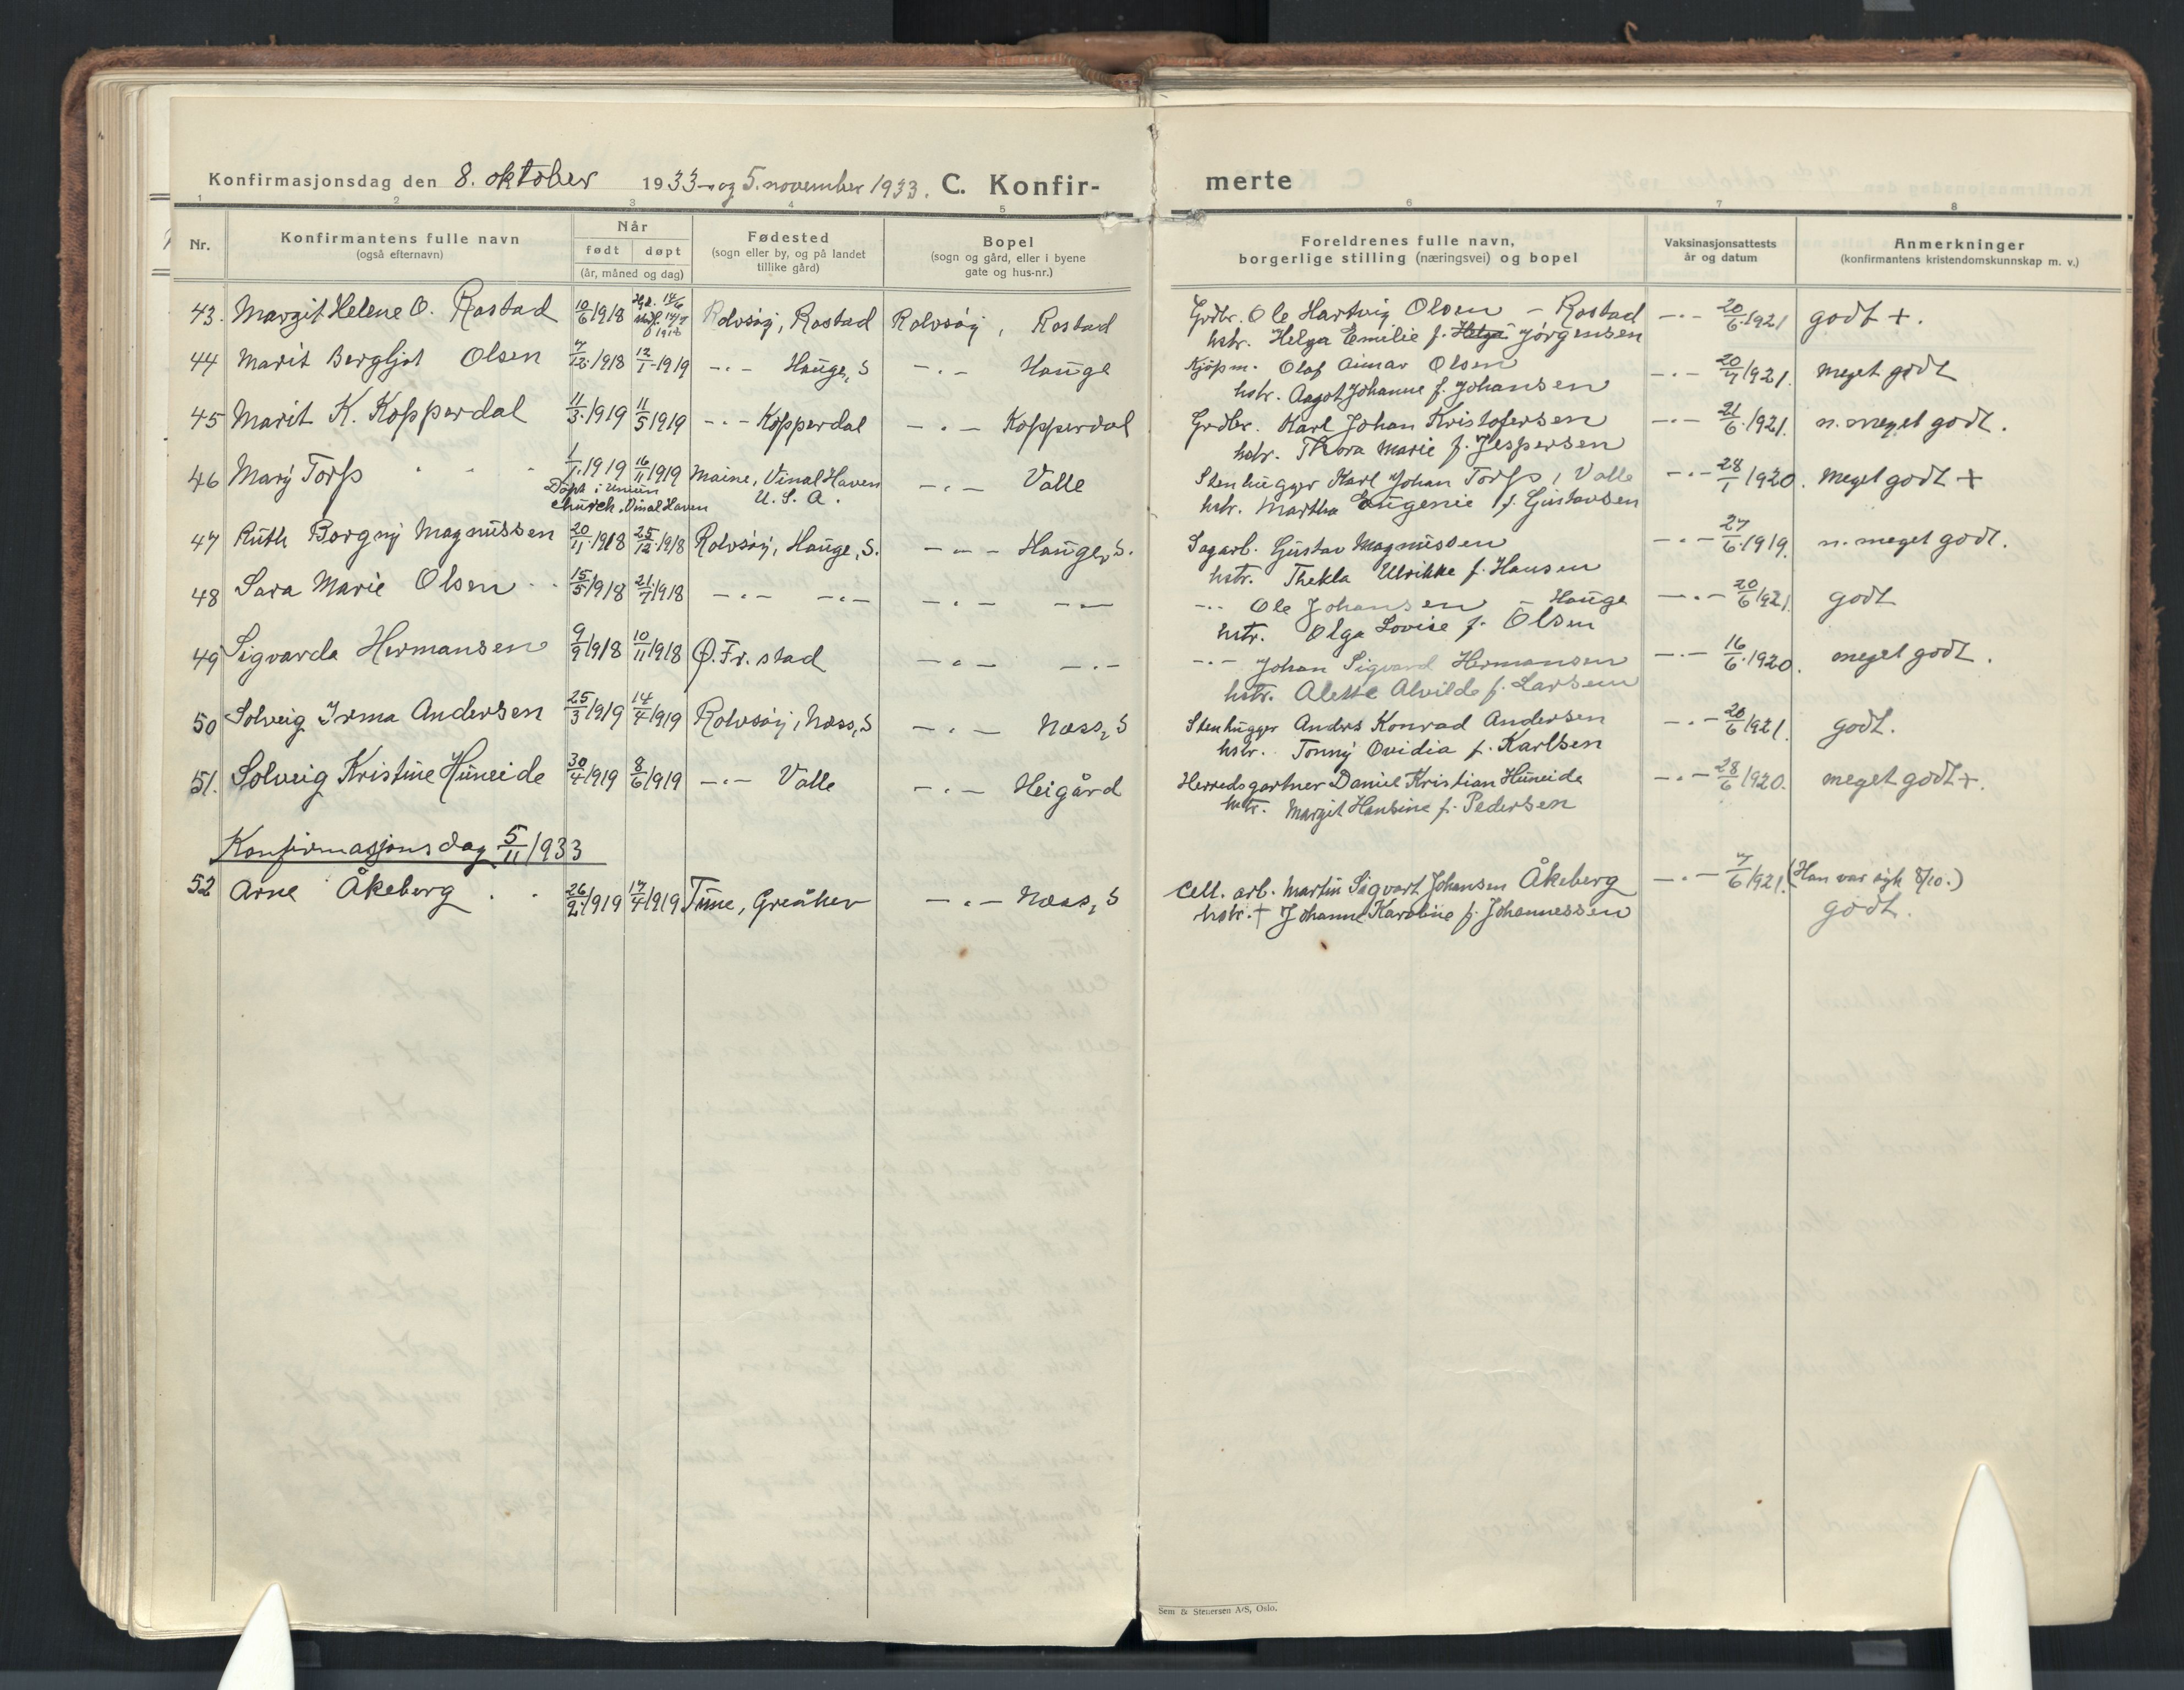 Konfirmasjonsdag den 8. oktober 1933 - og 5. november 1933. C. Konfir-
merte
1 2 3 4 5 6 7 8
Nr.
Konfirmantens fulle navn
(også efternavn)
Når
født døpt
(år, måned og dag)
Fødested
(sogn eller by, og på landet
tillike gård)
Bopel
(sogn og gård, eller i byene
gate og hus-nr.)
Foreldrenes fulle navn,
borgerlige stilling (næringsvei) og bopel
Vaksinasjonsattests
år og datum
Anmerkninger
(konfirmantens kristendomskunnskap m. v.)
43. Margit Helene O. Rostad 10/6 1918 1918 Rolvsøy, Rostad Rolvsøy, Rostad Grdbr. Ole Hartvig Olsen - Rostad -.- 20/6.1921 godt +.
hstr. Helga Emilie f. Helga Jørgensen
44 Marit Bergljot Olsen 7/12.1918 12/1-1919 -.- Hauge, S -.- Hauge Kjøpm. Olaf Aimar Olsen -.- 20/7 1921. meget godt
hstr. Aagot Johanne f. Johansen
45 Marit K. Kopperdal 11/3.1919 11/5 1919 -.- Kopperdal -.- Kopperdal Grdbr. Karl Johan Kristofersen -.- 21/6.1921. n. meget godt.
hstr. Thora Marie f. Jespersen
46 Mary Torp 1/1.1919 16/11 1919 Maine, Vinal Haven -.- Valle Stenhugger Karl Johan Torp, Valle -.- 28/1 1920. Meget godt +
Døpt i Union U. S. A.
church, Vinal Haven hstr. Martha Eugenie f. Gustavsen
47 Ruth Borgny Magnussen 20/11.1918 25/12.1918 Rolvsøy, Hauge, S. -.- Hauge, S. Sagarb. Gustav Magnussen -.- 27/6.1919. n. meget godt.
hstr. Thekla Ulrikke f. Hansen
48 Sara Marie Olsen 15/5 1918 21/7 1918 -.- -.- -.- -.- -.- Ole Johansen - Hauge -.- 20/6 1921. godt
hstr. Olga Lovise f. Olsen
49 Sigvarda Hermansen 9/9 1918 10/11 1918 Ø. Fr. stad -.- -.- -.- Johan Sigvard Hermansen -.- 16/6.1920. meget godt.
hstr. Alette Alvilde f. Larsen
50 Solveig Irma Andersen 25/3 1919 14/4 1919 Rolvsøy, Næss, S -.- Næss, S Stenhugger Anders Konrad Andersen -.- 20/6 1921. godt.
hstr. Tonny Ovidia f. Karlsen
51. Solveig Kristine Huneide 30/4 1919 8/6 1919 -.- Valle -.- Heigård Herredsgartner Daniel Kristian Huneide -.- 28/6 1920. meget godt +.
hstr. Margit Hansine f. Pedersen
Konfirmasjonsdag 5/11 1933
52 Arne Åkeberg 26/2.1919 17/4 1919 Tune, Greåker -.- Næss, S Cell. arb. Martin Sigvart Johansen Åkeberg -.- 7/6 1921. (Han var syk 8/10.)
hstr. + Johanne Karoline f. Johannessen godt.
Sem & Stenersen A/S, Oslo.